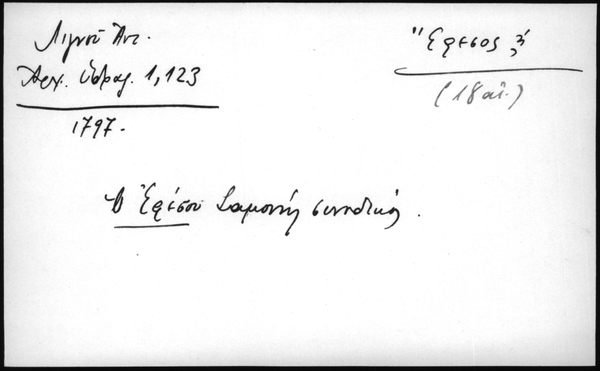 Λιγνού Αντ.
Αρχ. Ύδρας. 1, 123
1797.
"Έφεσος
(18 αι.)
Ο Ἐφέσου Σαμουήλ συνοδικός.